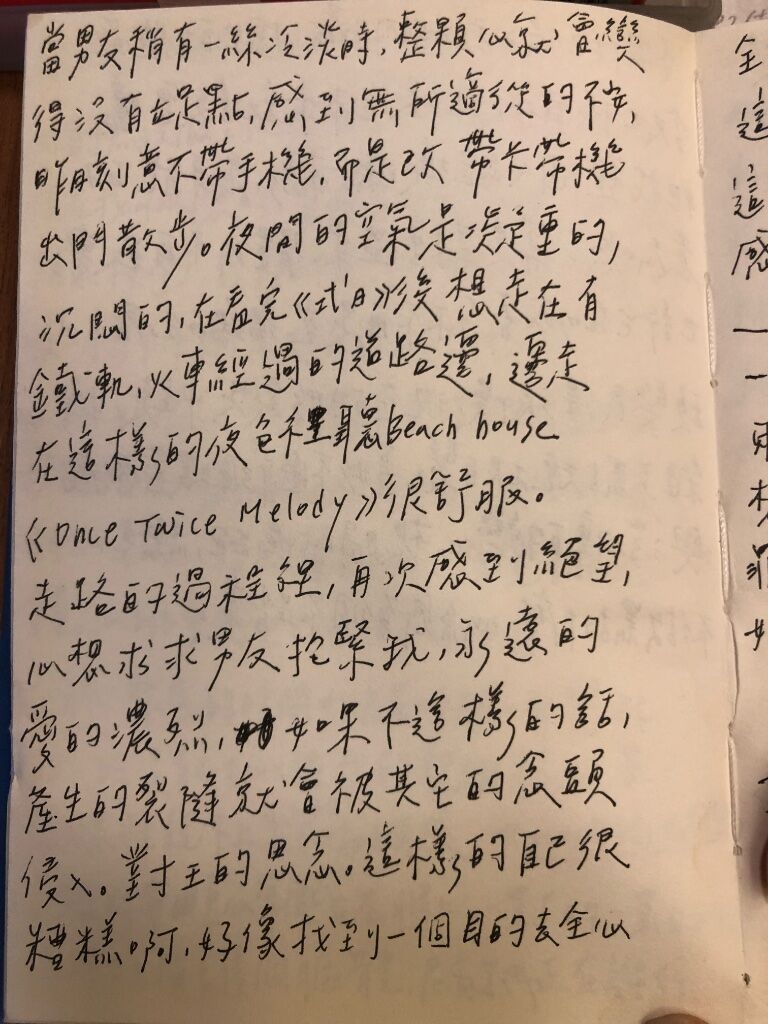 當男友稍有一絲冷淡時，整顆心就會變
得沒有立足點，感到無所適從的不安，
昨晚刻意不帶手機，而是改帶卡帶機
出門散步。夜間的空氣是凝重的，
沉悶的，在看完《式日》後想走在有
鐵軌，火車經過的道路邊，邊走
在這樣的夜色裡聽Beach house
《Once Twice Melody》很舒服。
走路的過程裡，再次感到絕望，
心想求求男友抱緊我，永遠的
愛的濃烈，如果不這樣的話，
產生的裂隙就會被其它的念頭
侵入。對王的思念。這樣的自己很
糟糕。啊，好像找到一個目的去全心
全
這
這
感
一
一